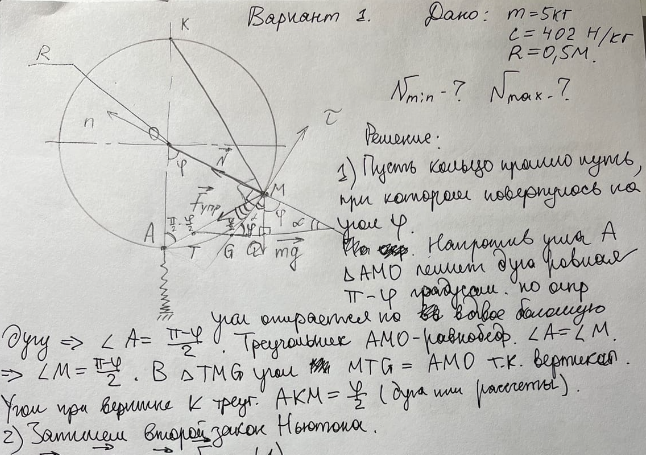 Вариант 1.
Дано: m=5кг
c = 402 Н/кг
R = 0,5м.
Nmin - ? Nmax - ?
K
R
n
τ
O
φ
N
M
Fупр
φ
α
A
π/2 - φ/2
T
G
Q
mg
Решение:
1) Пусть кольцо прошло путь,
при котором повернулось на
угол φ.
Напротив угла A
△AMO лежит дуга равная
π-φ градусам. но
угол опирается на вдвое большую
дугу ⇒ ∠A = π-φ/2. Треугольник AMO-равнобедр. ∠A=∠M.
⇒ ∠M = π-φ/2. В △TMG угол MTG = AMO т.к. вертикал.
Угол при вершине K треуг. AKM = φ/2 (дуга или рассчеты).
2) Запишем второй закон Ньютона.